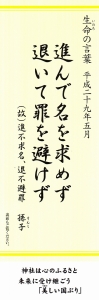 生命の言葉　平成二十九年五月
進んで名を求めず
退いて罪を避けず
(故)進不求名、退不避罪　孫子
神社は心のふるさと
未来に受け継ごう
「美しい国ぶり」